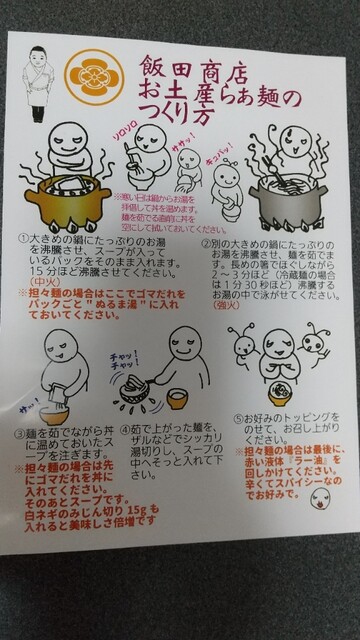 飯田商店
お土産らぁ麺の
つくり方
ソロソロ
ササッ!
キュパッ!
※寒い日は鍋からお湯を
拝借して丼を温めます。
麺を茹でる直前に丼を
空にして拭いておいてください。
①大きめの鍋にたっぷりのお湯
を沸騰させ、スープが入って
いるパックをそのまま入れます。
15分ほど沸騰させてください。
(中火)
※担々麺の場合はここでゴマだれを
パックごと"ぬるま湯"に入れ
ておいてください。
②別の大きめの鍋にたっぷりの
お湯を沸騰させ、麺を茹でま
す。長めの箸でほぐしながら
2~3分ほど(冷蔵麺の場合
は1分30秒ほど)沸騰する
お湯の中で泳がせてください。
(強火)
サッ!
チャッ!
チャッ!
③麺を茹でながら丼
に温めておいたス
ープを注ぎます。
※担々麺の場合は先
にゴマだれを丼に
入れてください。
そのあとスープです。
白ネギのみじん切り15gも
入れると美味しさ倍増です
④茹で上がった麺を、
ザルなどでシッカリ
湯切りし、スープの
中へそっと入れて下
さい。
⑤お好みのトッピングを
のせて、お召し上がり
ください。
※担々麺の場合は最後に、
赤い液体『ラー油』を
回しかけてください。
辛くてスパイシーなの
でお好みで。